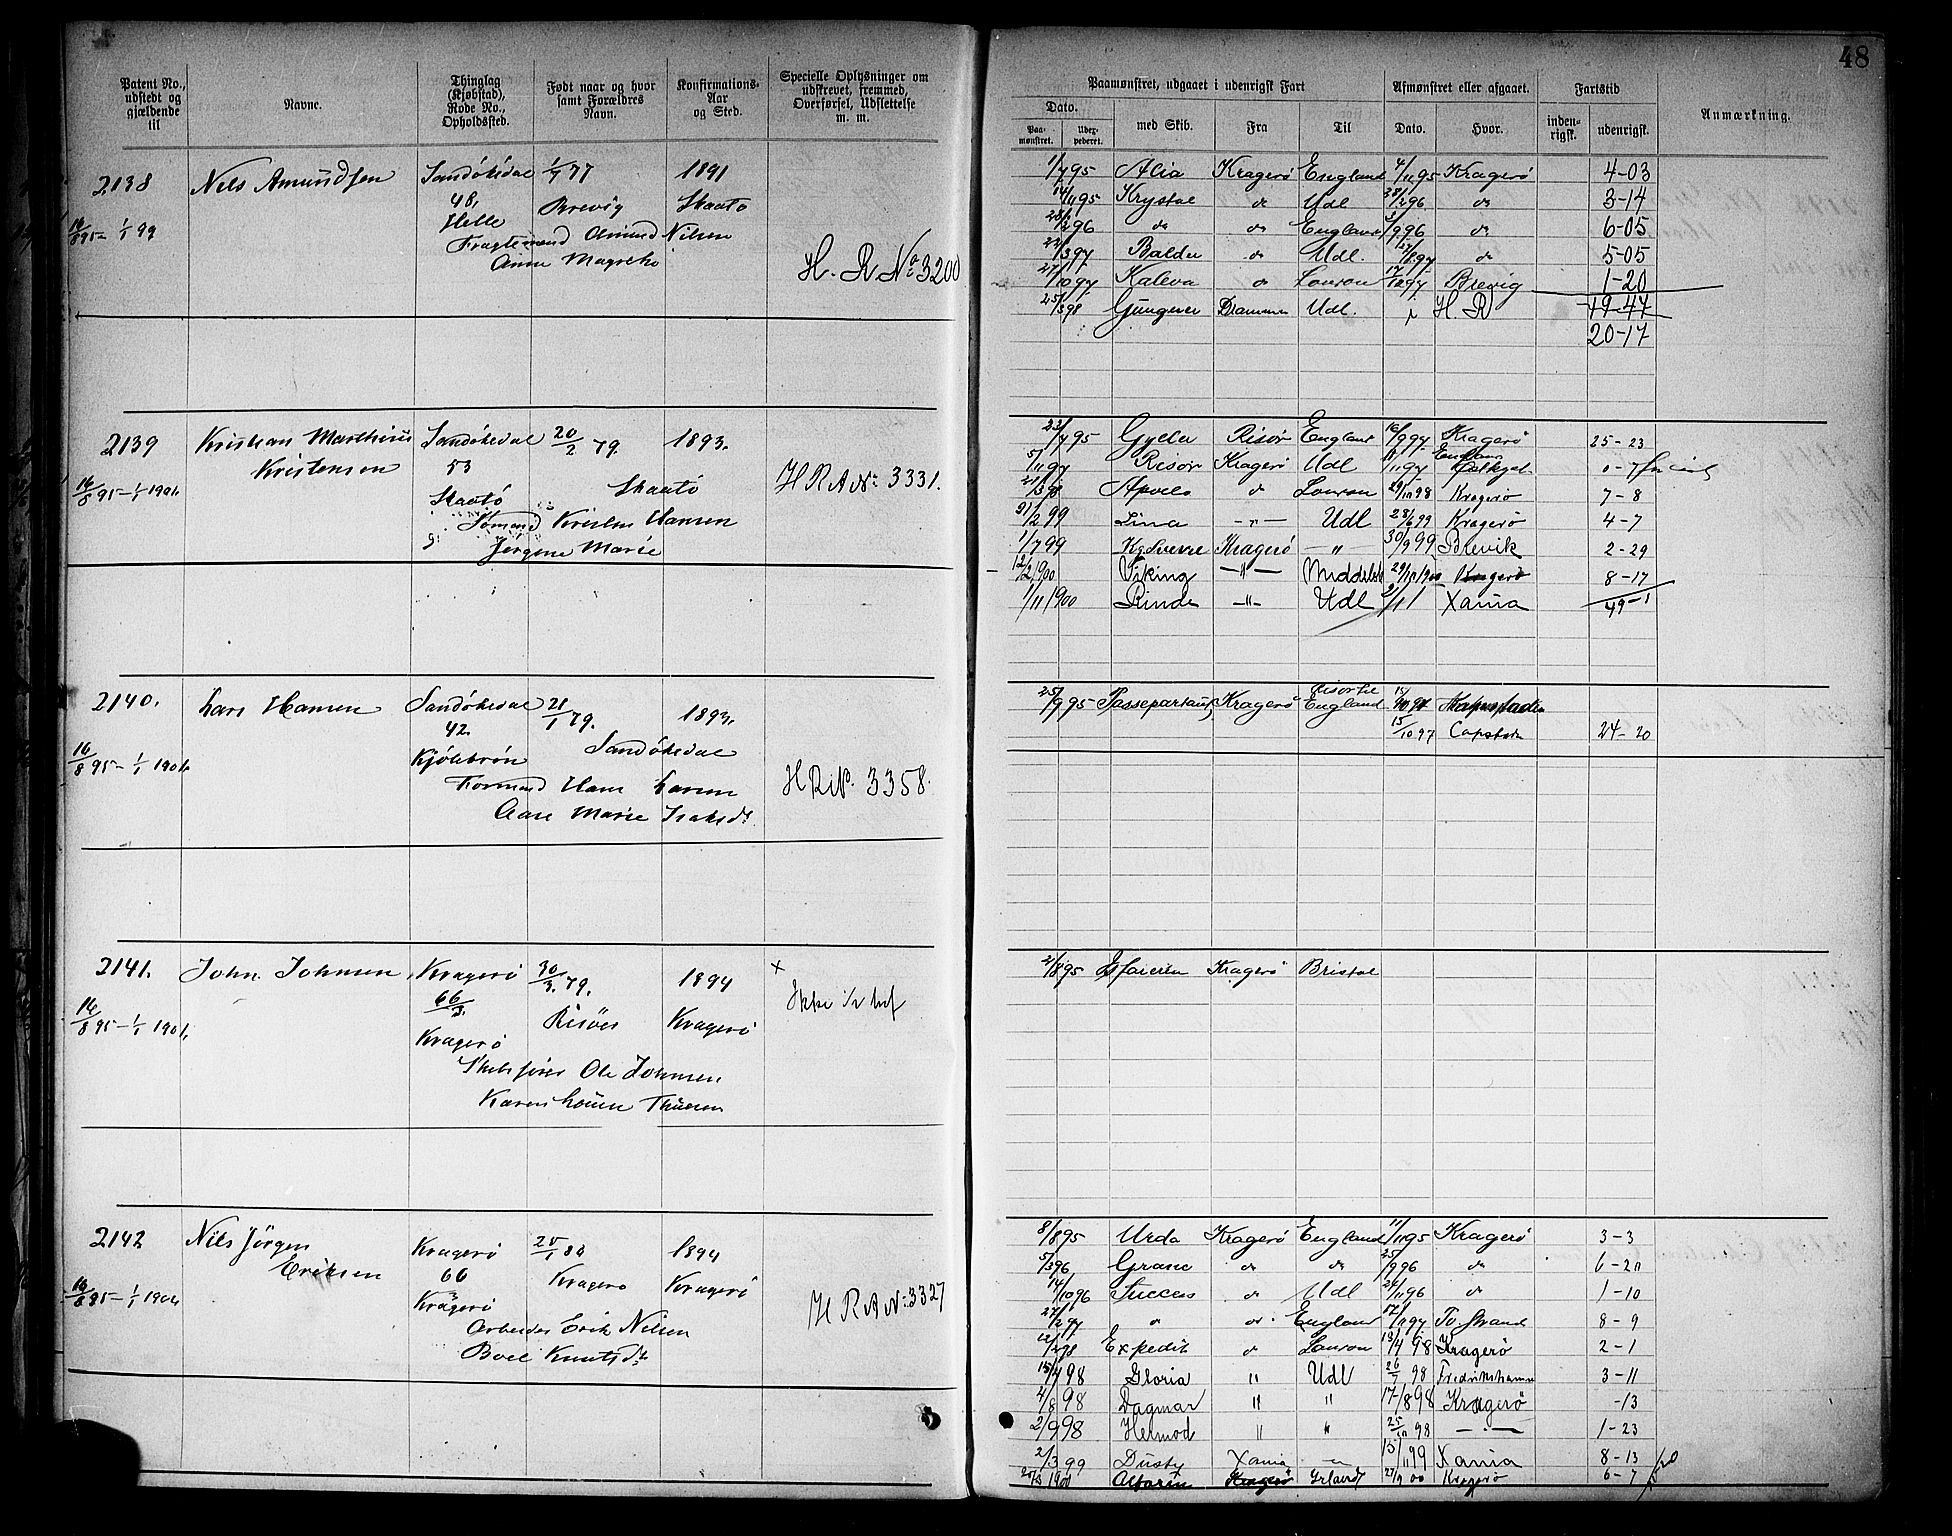 48
Patent No., udstedt og gjældende til
Navne.
Thinglag (Kjøbstad), Rode No., Opholdssted.
Født naar og hvor samt Forældres Navn.
Konfirmations-Aar og Sted.
Specielle Oplysninger om udskrevet, fremmed, Overførsel, Udslettelse m. m.
Paamønstret, udgaaet i udenrigsk Fart
Afmønstret eller afgaaet.
Fartstid
Anmærkning.
Dato.
med Skib.
Fra
Til
Dato.
Hvor.
inden-rigsk.
udenrigsk.
Paa-mønstret.
2138 Nels Amundsen Sandökedal 1/7 77 1891
48, Brevig Skaatö
16/8 95 - 1/1 99 Helle
Amund Nilsen
H. R No 3200
1/7 95 Alia Kragerö England 4/11 95 Kragerö 4-03
14/11 95 Krystal do Udl 28/2 96 do 3-14
28/2 96 do do England 3/9 96 do 6-05
22/3 97 Balder do Udl. 27/8 97 do 5-05
27/10 97 Kaleva do London 17/12 97 Brevig 1-20
25/3 98 Gungner Drammen Udl. i H. R 19-47
20-17
2139 Kristian Marthinus Sandökedal 20/2 79. 1893.
Kristensen 53
16/8 95 - 1/1 1901. Skaatö Skaatö H R A No: 3331.
Kristen Hansen
Jørgine Marie
23/7 95 Gyda Risör England 16/9 97 Kragerö 25-23
5/11 97 Risör Kragerö Udl 11/11 97 England 0-7
Apollo do London 29/10 98 Kragerö 7-8
21/2 99 Lina -"- Udl 28/6 99 Kragerö 4-7
1/7 99 Kg Sverre Kragerö -"- 30/9 99 Brevik 2-29
12/2 1900 Viking -"- 29/10 1900 Kragerö 8-17
1/11 1900 Rinde -"- Udl Xania 49-1
2140. Lars Hansen Sandökedal 21/1 79. 1893.
42. Sandökedal
16/8 95 - 1/1 1901. Kjölebrön
Formand Hans Larsen
Marie Isaksdt
H R No. 3358.
25/9 95 Passepartout Kragerö England Kapstaden
15/10 97 Capstadn 24-20
2141. John Johnsen Kragerö 30/3. 79. 1894 x
66/3. Risöer Kragerö
16/8 95 - 1/1 1901. Kragerö
Ole Johnsen
Karen
Kragerö Bristol
2142 Nils Jörgen Eriksen Kragerö 25/1 80 1894
66 Kragerö Kragerö
16/8 95 - 1/1 1902 Kragerö
Arbeider Erik Nilsen
Boel Knutsdt.
H R A No: 3327
8/8 95 Urda Kragerö England 11/11 95 Kragerö 3-3
5/3 96 Grane do do 25/9 96 do 6-20
14/10 96 Succes do Udl 24/11 96 do 1-10
27/2 97 " do England 12/11 97 Tv.strand 8-9
12/2 98 Expedit do London 13/4 98 Kragerö 2-1
15/4 98 Gloria " Udl 26/7 98 Fredrikshamn 3-11
4/8 98 Dagmar " " 17/8 98 Kragerö -13
2/9 98 Heimod " " 25/10 98 -"- 1-23
2/3 99 Dusty Xania " 15/11 99 Xania 8-13
1900 Kragerö Irland 27/9 00 Kragerö 6-7